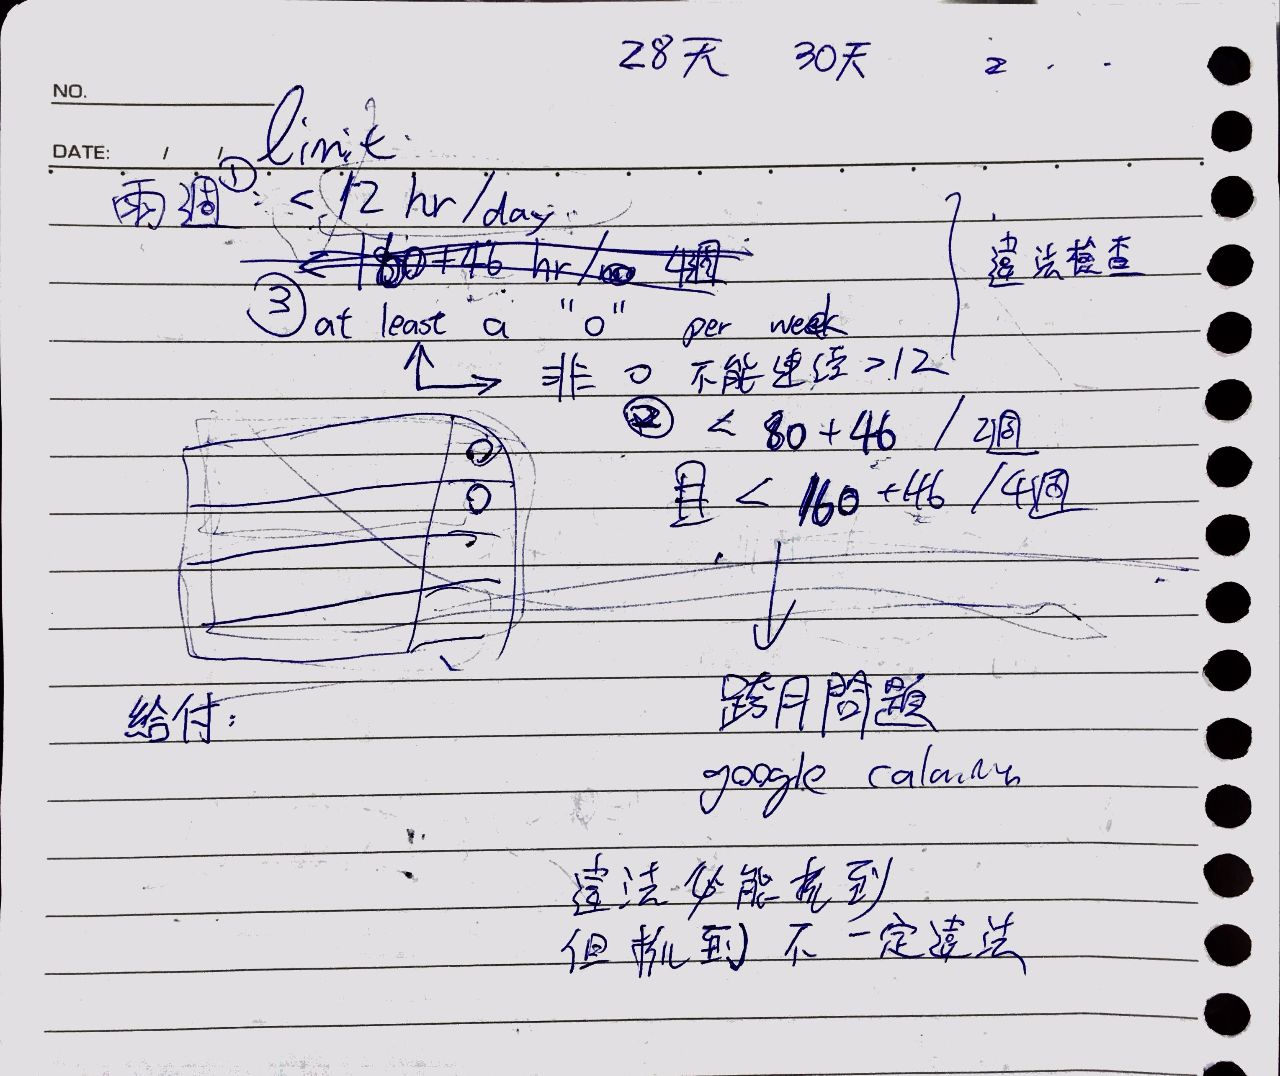 28天 30天 2 . .
NO.
limit
DATE: / /
兩週 ① : < 12 hr/day
< 180+46 hr/ 4週
違法檢查
③ at least a "0" per week
非 0 不能連續 >12
② < 80+46 /2週
且 < 160+46 /4週
給付:
跨月問題
google
違法必能抓到
但抓到不一定違法